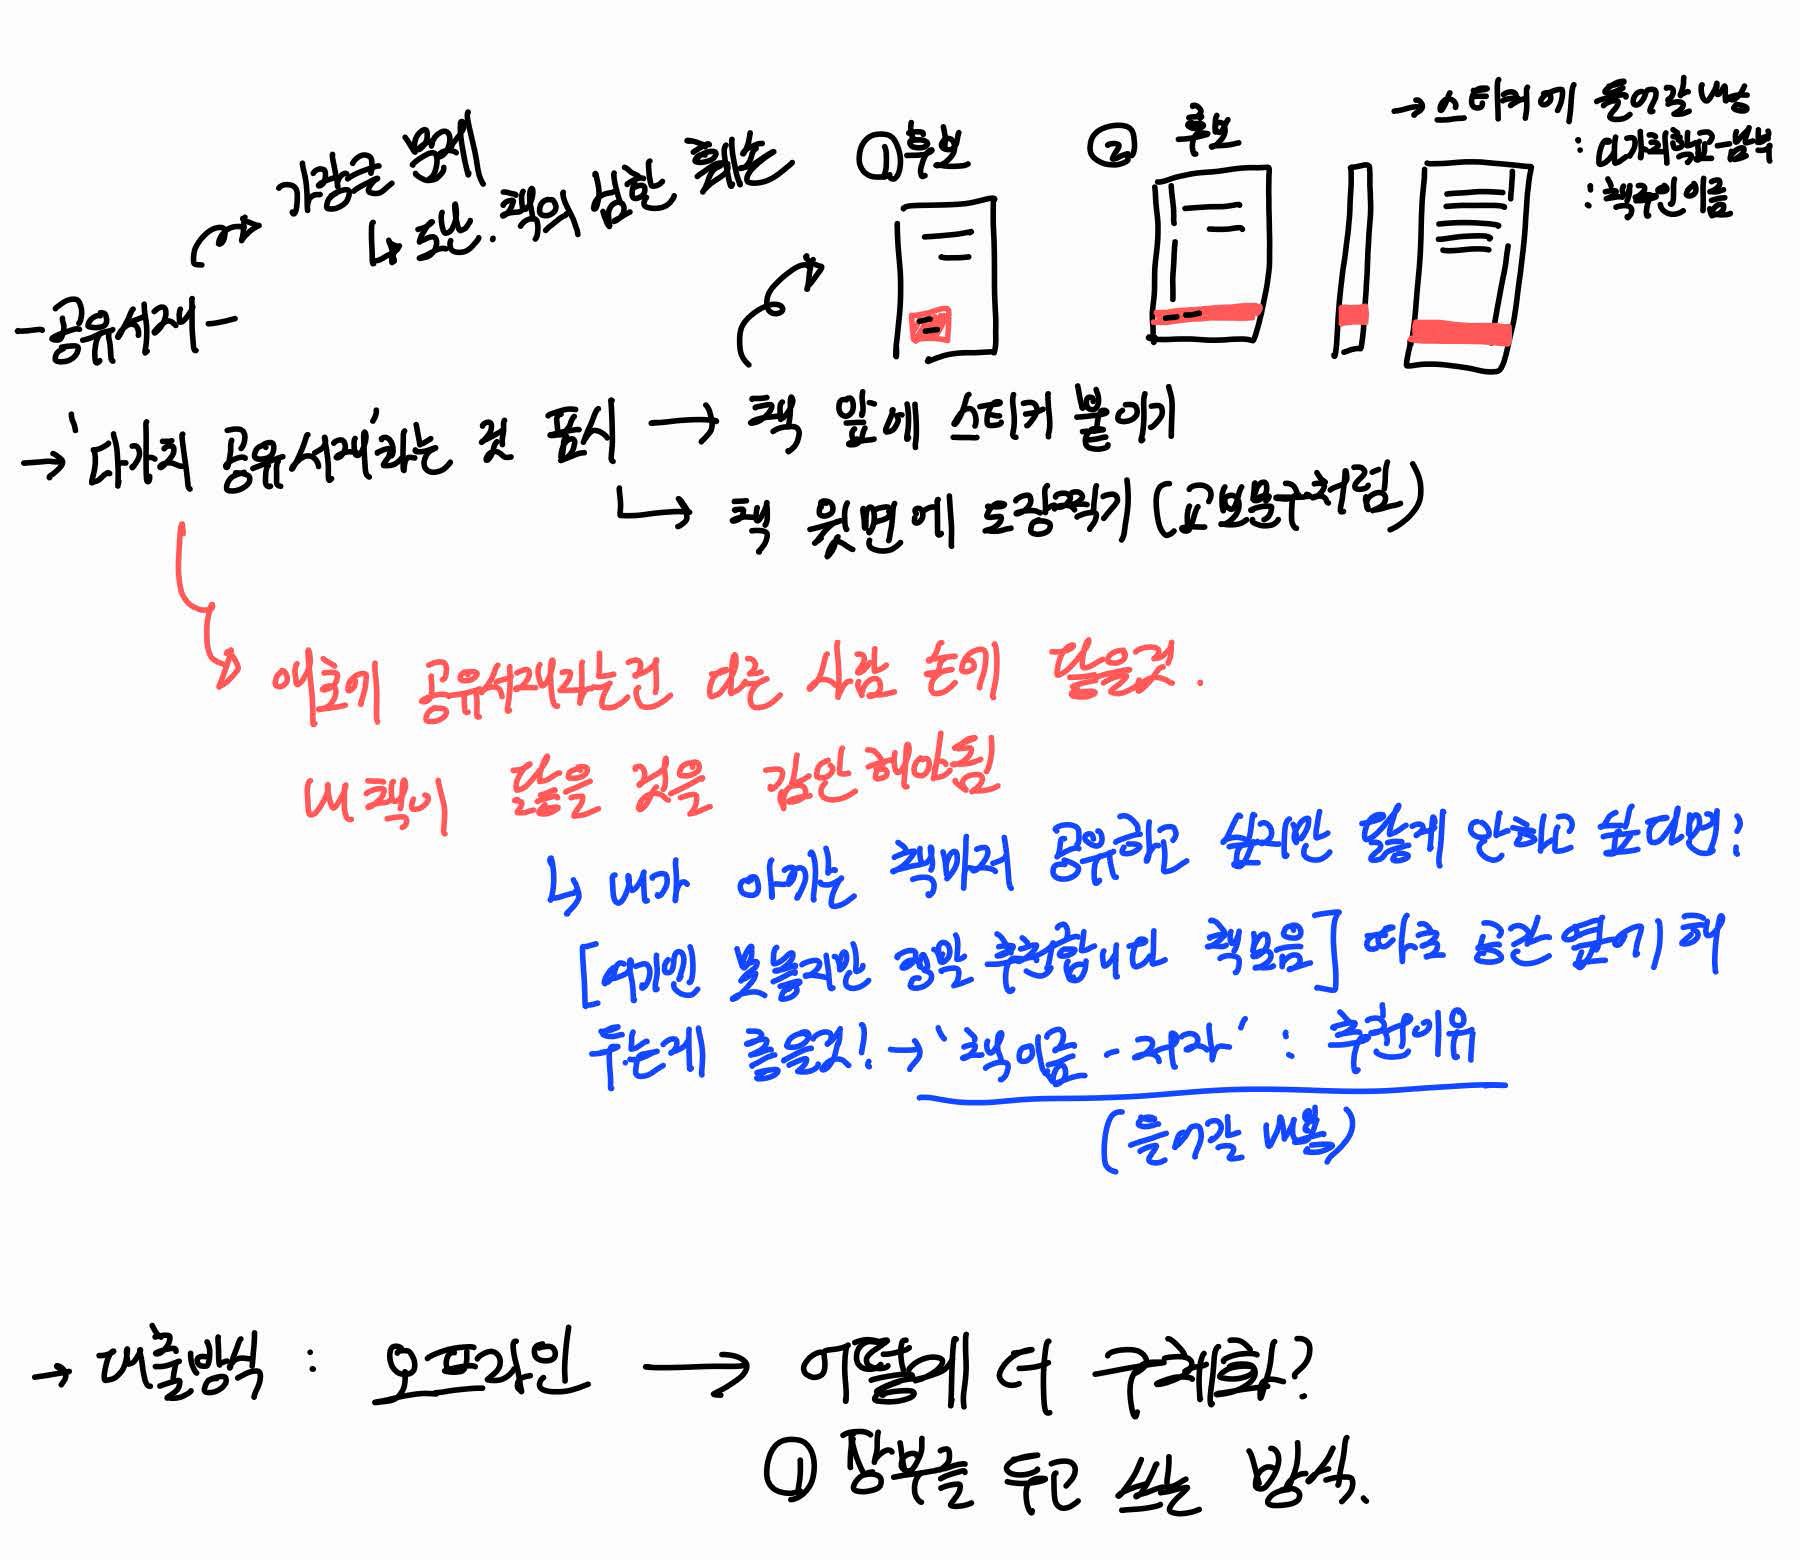 가장큰 문제
↳ 도난. 책의 심한 훼손
① 후보
② 후보
→ 스티커에 들어갈 내용
: 다가치학교-남부
: 책주인이름
-공유서재-
→ '다가치 공유서재'라는 것 표시 → 책 앞에 스티커 붙이기
↳ 책 윗면에 도장찍기 (교보문구처럼)
애초에 공유서재라는건 다른 사람 손에 닳을것.
내 책이 닳을 것을 감안해야됨
↳ 내가 아끼는 책마저 공유하고 싶지만 닳게 안하고 싶다면?
[여기엔 못놓지만 정말 추천합니다 책모음] 따로 공간 옆에 해
두는게 좋을것! → '책이름 - 저자' : 추천이유
(들어갈 내용)
→ 대출방식 : 오프라인 → 어떻게 더 구체화?
① 장부를 두고 쓰는 방식.